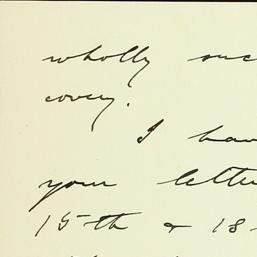 wholly suc
covery.
I hav
your lette
15-th & 18-